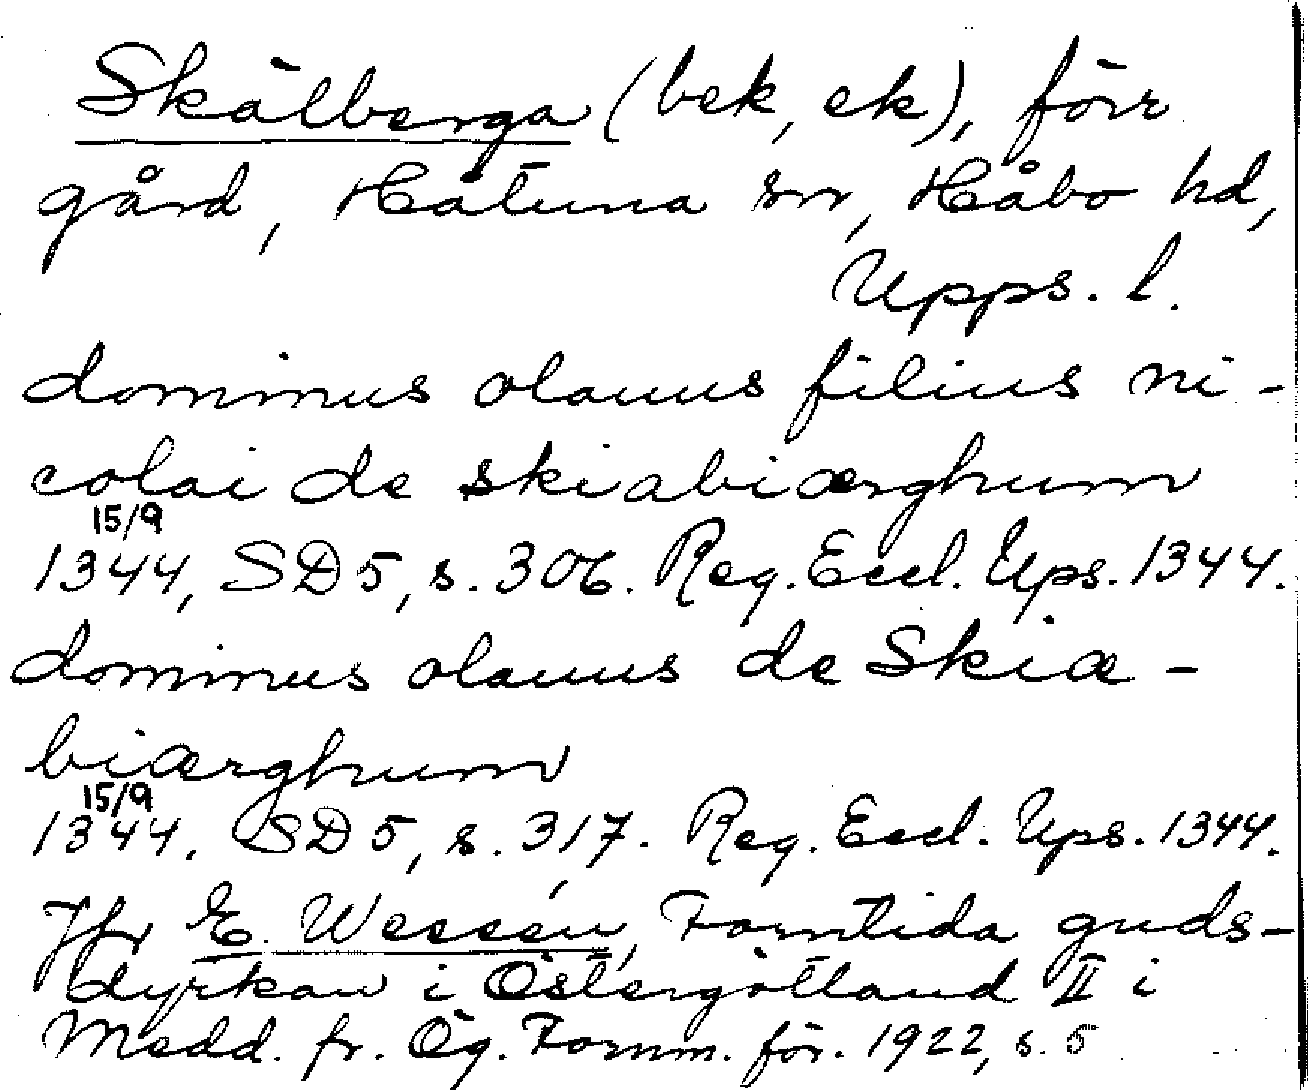 Skälberga (bek, ek), förr
gård, Håtuna sn, Håbo hd,
Upps. l.
dominus olauus filius ni-
colai de skiabiærghum
15/9
1344, SD 5, s. 306. Reg. Eccl. Ups. 1344.
dominus olauus de Skiæ-
biærghum
15/9
1344. SD 5, s. 317. Reg. Eccl. Ups. 1344.
Jfr E. Wessén, Forntida guds-
dyrkan i Östergötland II i
Medd. fr. Ög. Fornm. för. 1922, s. 5